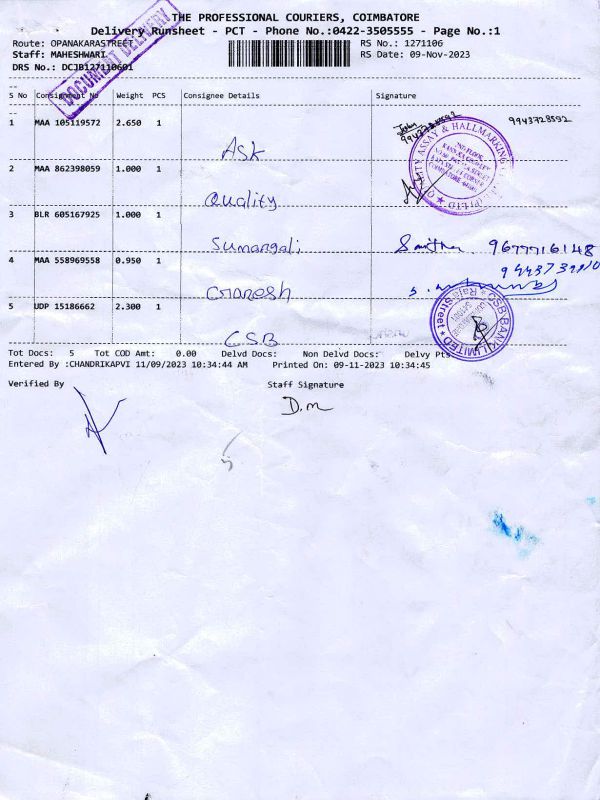 THE PROFESSIONAL COURIERS, COIMBATORE
Delivery Runsheet - PCT - Phone No.:0422-3505555 - Page No.:1
Route: OPANAKARASTREET
RS No.: 1271106
Staff: MAHESHWARI
RS Date: 09-Nov-2023
DRS No.: DCJB127110601
DOCUMENT DELIVERY
S No Consignment No Weight PCS Consignee Details Signature
1 MAA 105119572 2.650 1
9943728592 9943728592
Ask
2 MAA 862398059 1.000 1
QUALITY ASSAY & HALLMARKING (P) LTD
Quality
3 BLR 605167925 1.000 1
Sumangali 9677716148
4 MAA 558969558 0.950 1
Ganesh
5 UDP 15186662 2.300 1
CSB BANK LIMITED
Raja Street
CSB
Tot Docs: 5 Tot COD Amt: 0.00 Delvd Docs: Non Delvd Docs: Delvy Pts
Entered By :CHANDRIKAPVI 11/09/2023 10:34:44 AM Printed On: 09-11-2023 10:34:45
Verified By Staff Signature
D.m